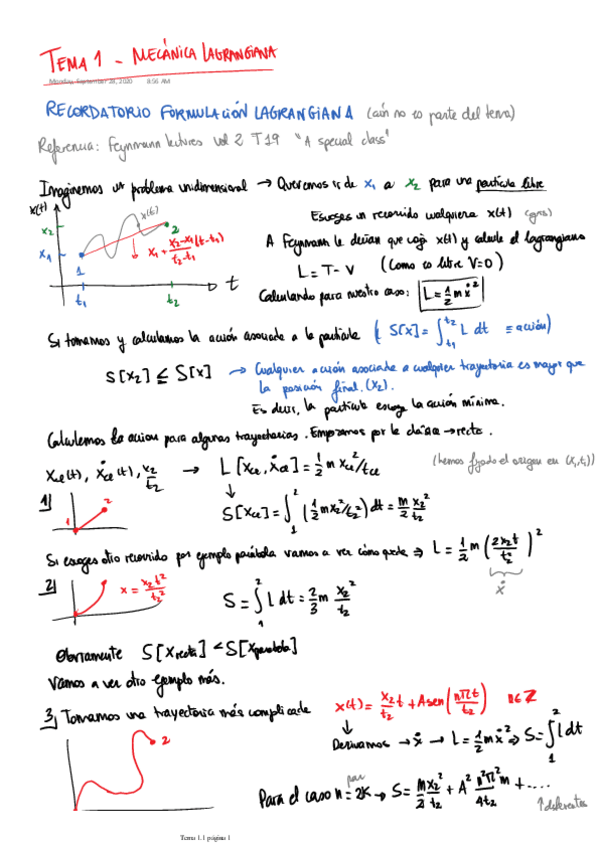 TEMA 1 - MECÁNICA LAGRANGIANA
Monday, September 28, 2020 8:56 AM
RECORDATORIO FORMULACIÓN LAGRANGIANA (aún no es parte del tema)
Referencia: Feynmann lectures vol 2 T19 "A special class"
Imaginemos un problema unidimensional → Queremos ir de x₁ a x₂ para una partícula libre
x(t)
x₂
x₁
1
2
x(t)
x₁ + (x₂-x₁)(t-t₁)/(t₂-t₁)
t₁ t₂ t
Escoges un recorrido cualquiera x(t)
A Feynmann le decían que coja x(t) y calcule el lagrangiano
L = T - V (Como es libre V=0)
Calculando para nuestro caso: L = 1/2 m ẋ²
Si tomamos y calculamos la acción asociada a la partícula ( S[x] = ∫_{t₁}^{t₂} L dt ≡ acción)
S[x₂] ≤ S[x] → Cualquier acción asociada a cualquier trayectoria es mayor que
la posición final. (x₂).
Es decir, la partícula escoge la acción mínima.
Calculemos la acción para algunas trayectorias. Empezamos por la clásica → recta.
x_cl(t), ẋ_cl(t), x₂/t₂ → L[x_cl, ẋ_cl] = 1/2 m x_cl²/t_cl (hemos fijado el origen en (x₁,t₁))
1)
1 2
S[x_cl] = ∫₁² (1/2 m x₂²/t₂²) dt = m/2 x₂²/t₂
Si escoges otro recorrido por ejemplo parábola vamos a ver cómo queda ⇒ L = 1/2 m (2x₂t/t₂²)²
ẋ
2)
x = x₂t²/t₂²
S = ∫₁² L dt = 2/3 m x₂²/t₂
Obviamente S[x recta] < S[x parábola]
Vamos a ver otro ejemplo más.
3) Tomamos una trayectoria más complicada x(t) = x₂t/t₂ + A sen(nπt/t₂) n∈Z
2
Derivamos → ẋ → L = 1/2 m ẋ² ⇒ S = ∫₁² L dt
Para el caso n = 2K → S = m x₂²/2 t₂ + A² n²π²m/4t₂ + ....
par
↑ diferentes
Tema 1.1 página 1